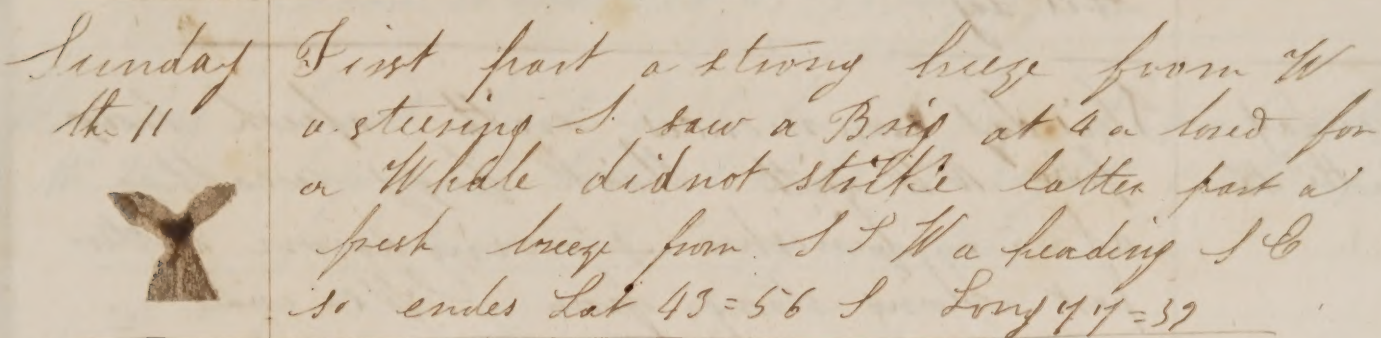 Sunday First part a strong breeze from W
th 11 a steering S. saw a Brig at 4 a lored for
a Whale didnot strike latter part a
fresh breeze from S S W a heading S E
so endes Lat 43=56 S Long 77=39